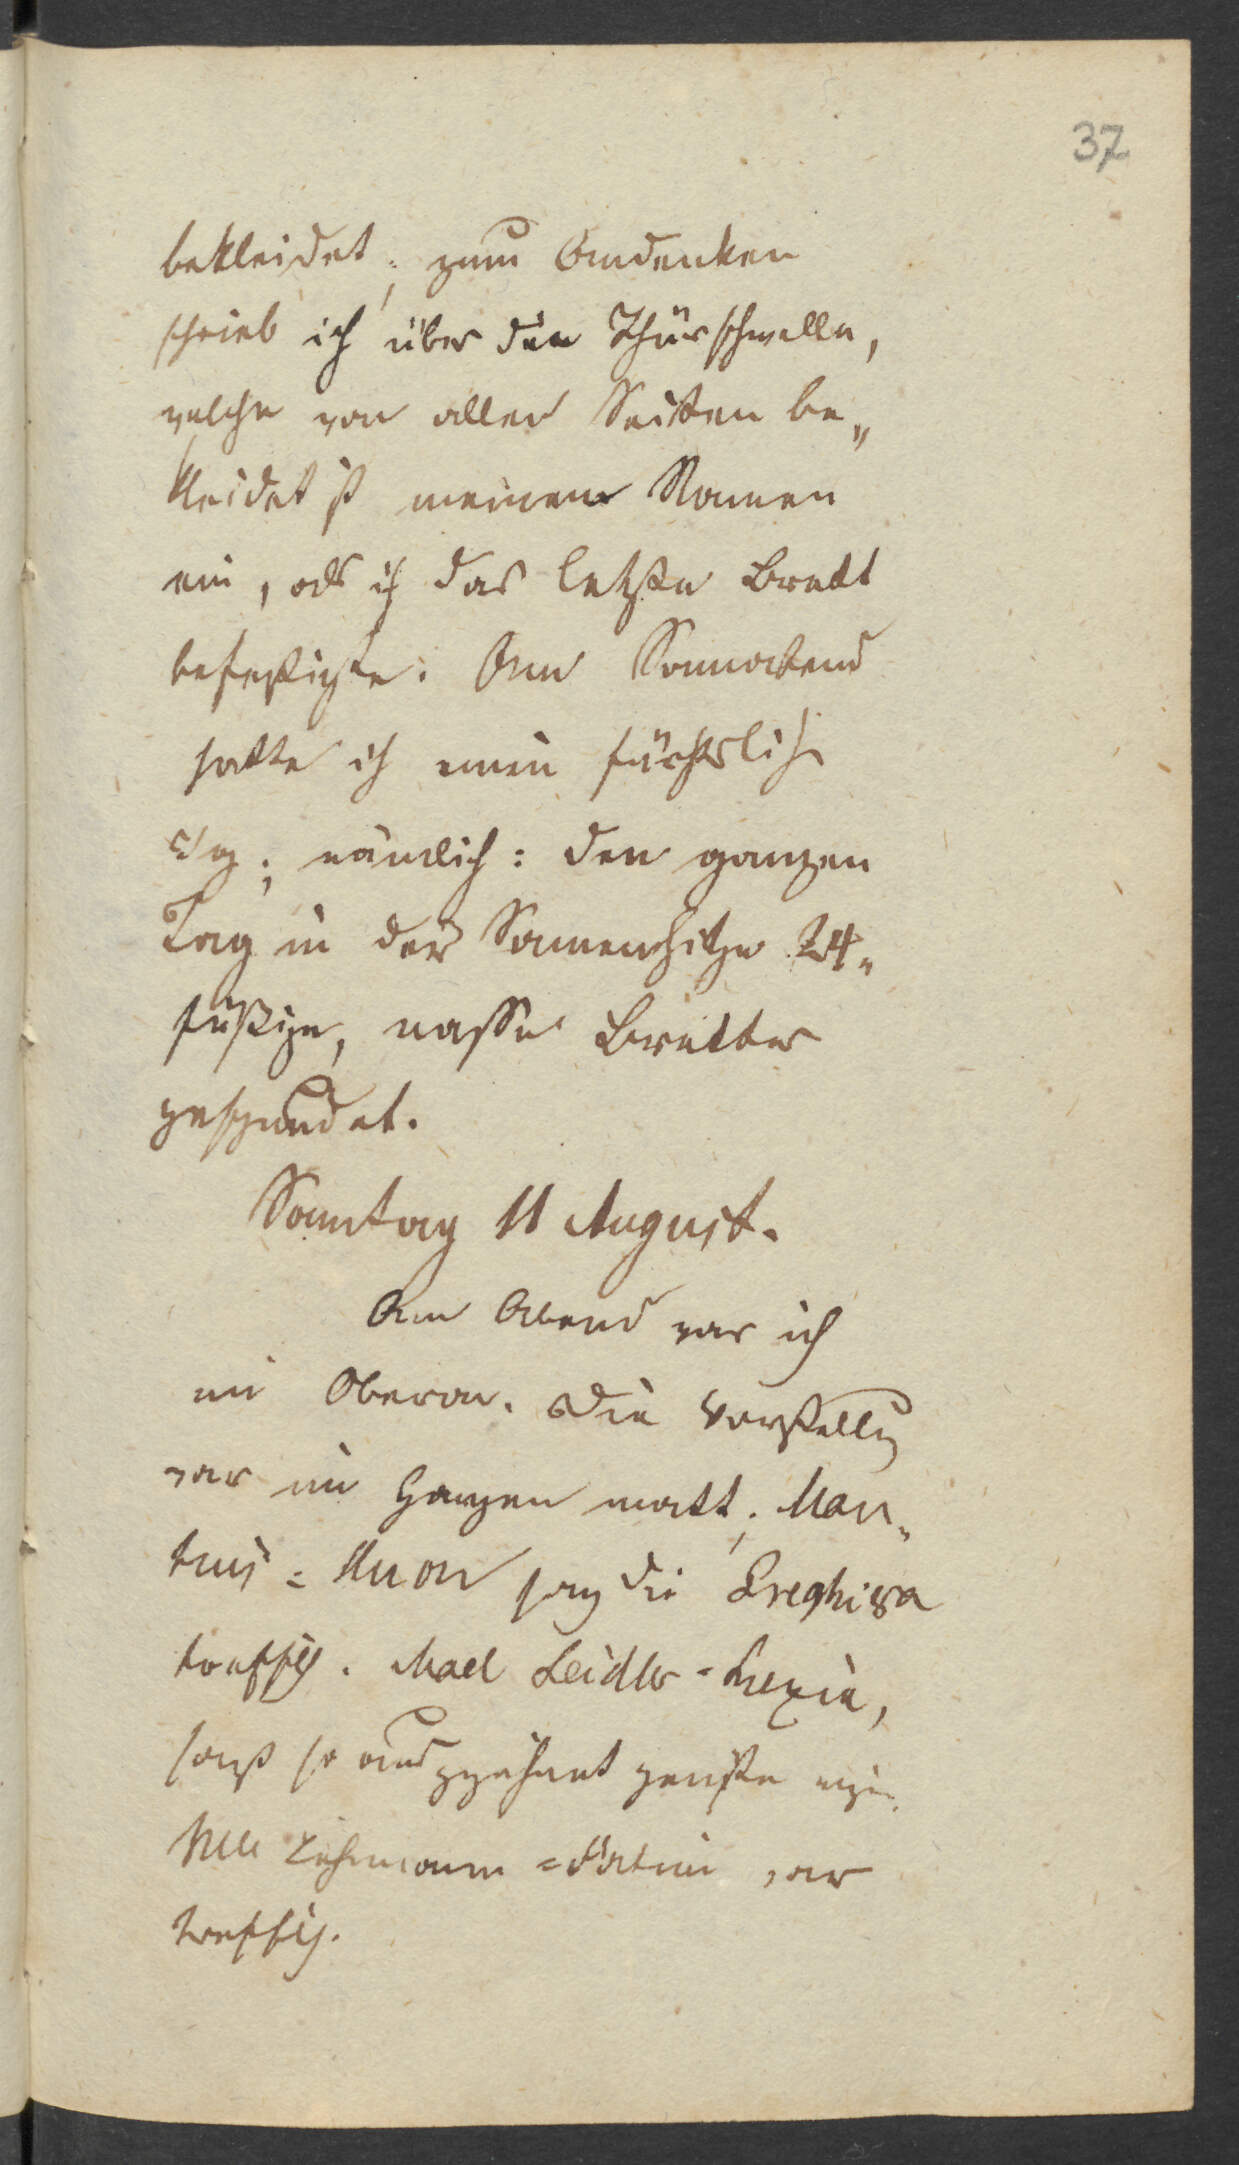 37
bekleidet; zum Andenken
schrieb ich über den Thürschwelle,
welche von allen Seiten be„
kleidet ist meinen Namen
ein, als ich das letzte Brett
befestigte. Am Sonnabend
hatte ich einen fürchterlich
nämlich: den ganzen
Tag in der Sonnenhitze 24„
füßige, nasse Bretter
gespundet.
Sonntag 11 August.
Am Abend war ich
im Oberon. Die Vorstellung
war im Ganzen matt; Man„
tius = Huon sang die Preghiera
trefflich. Mad Seidler = Rezia,
so
Mlle Lehmann = Fatime war
trefflich.